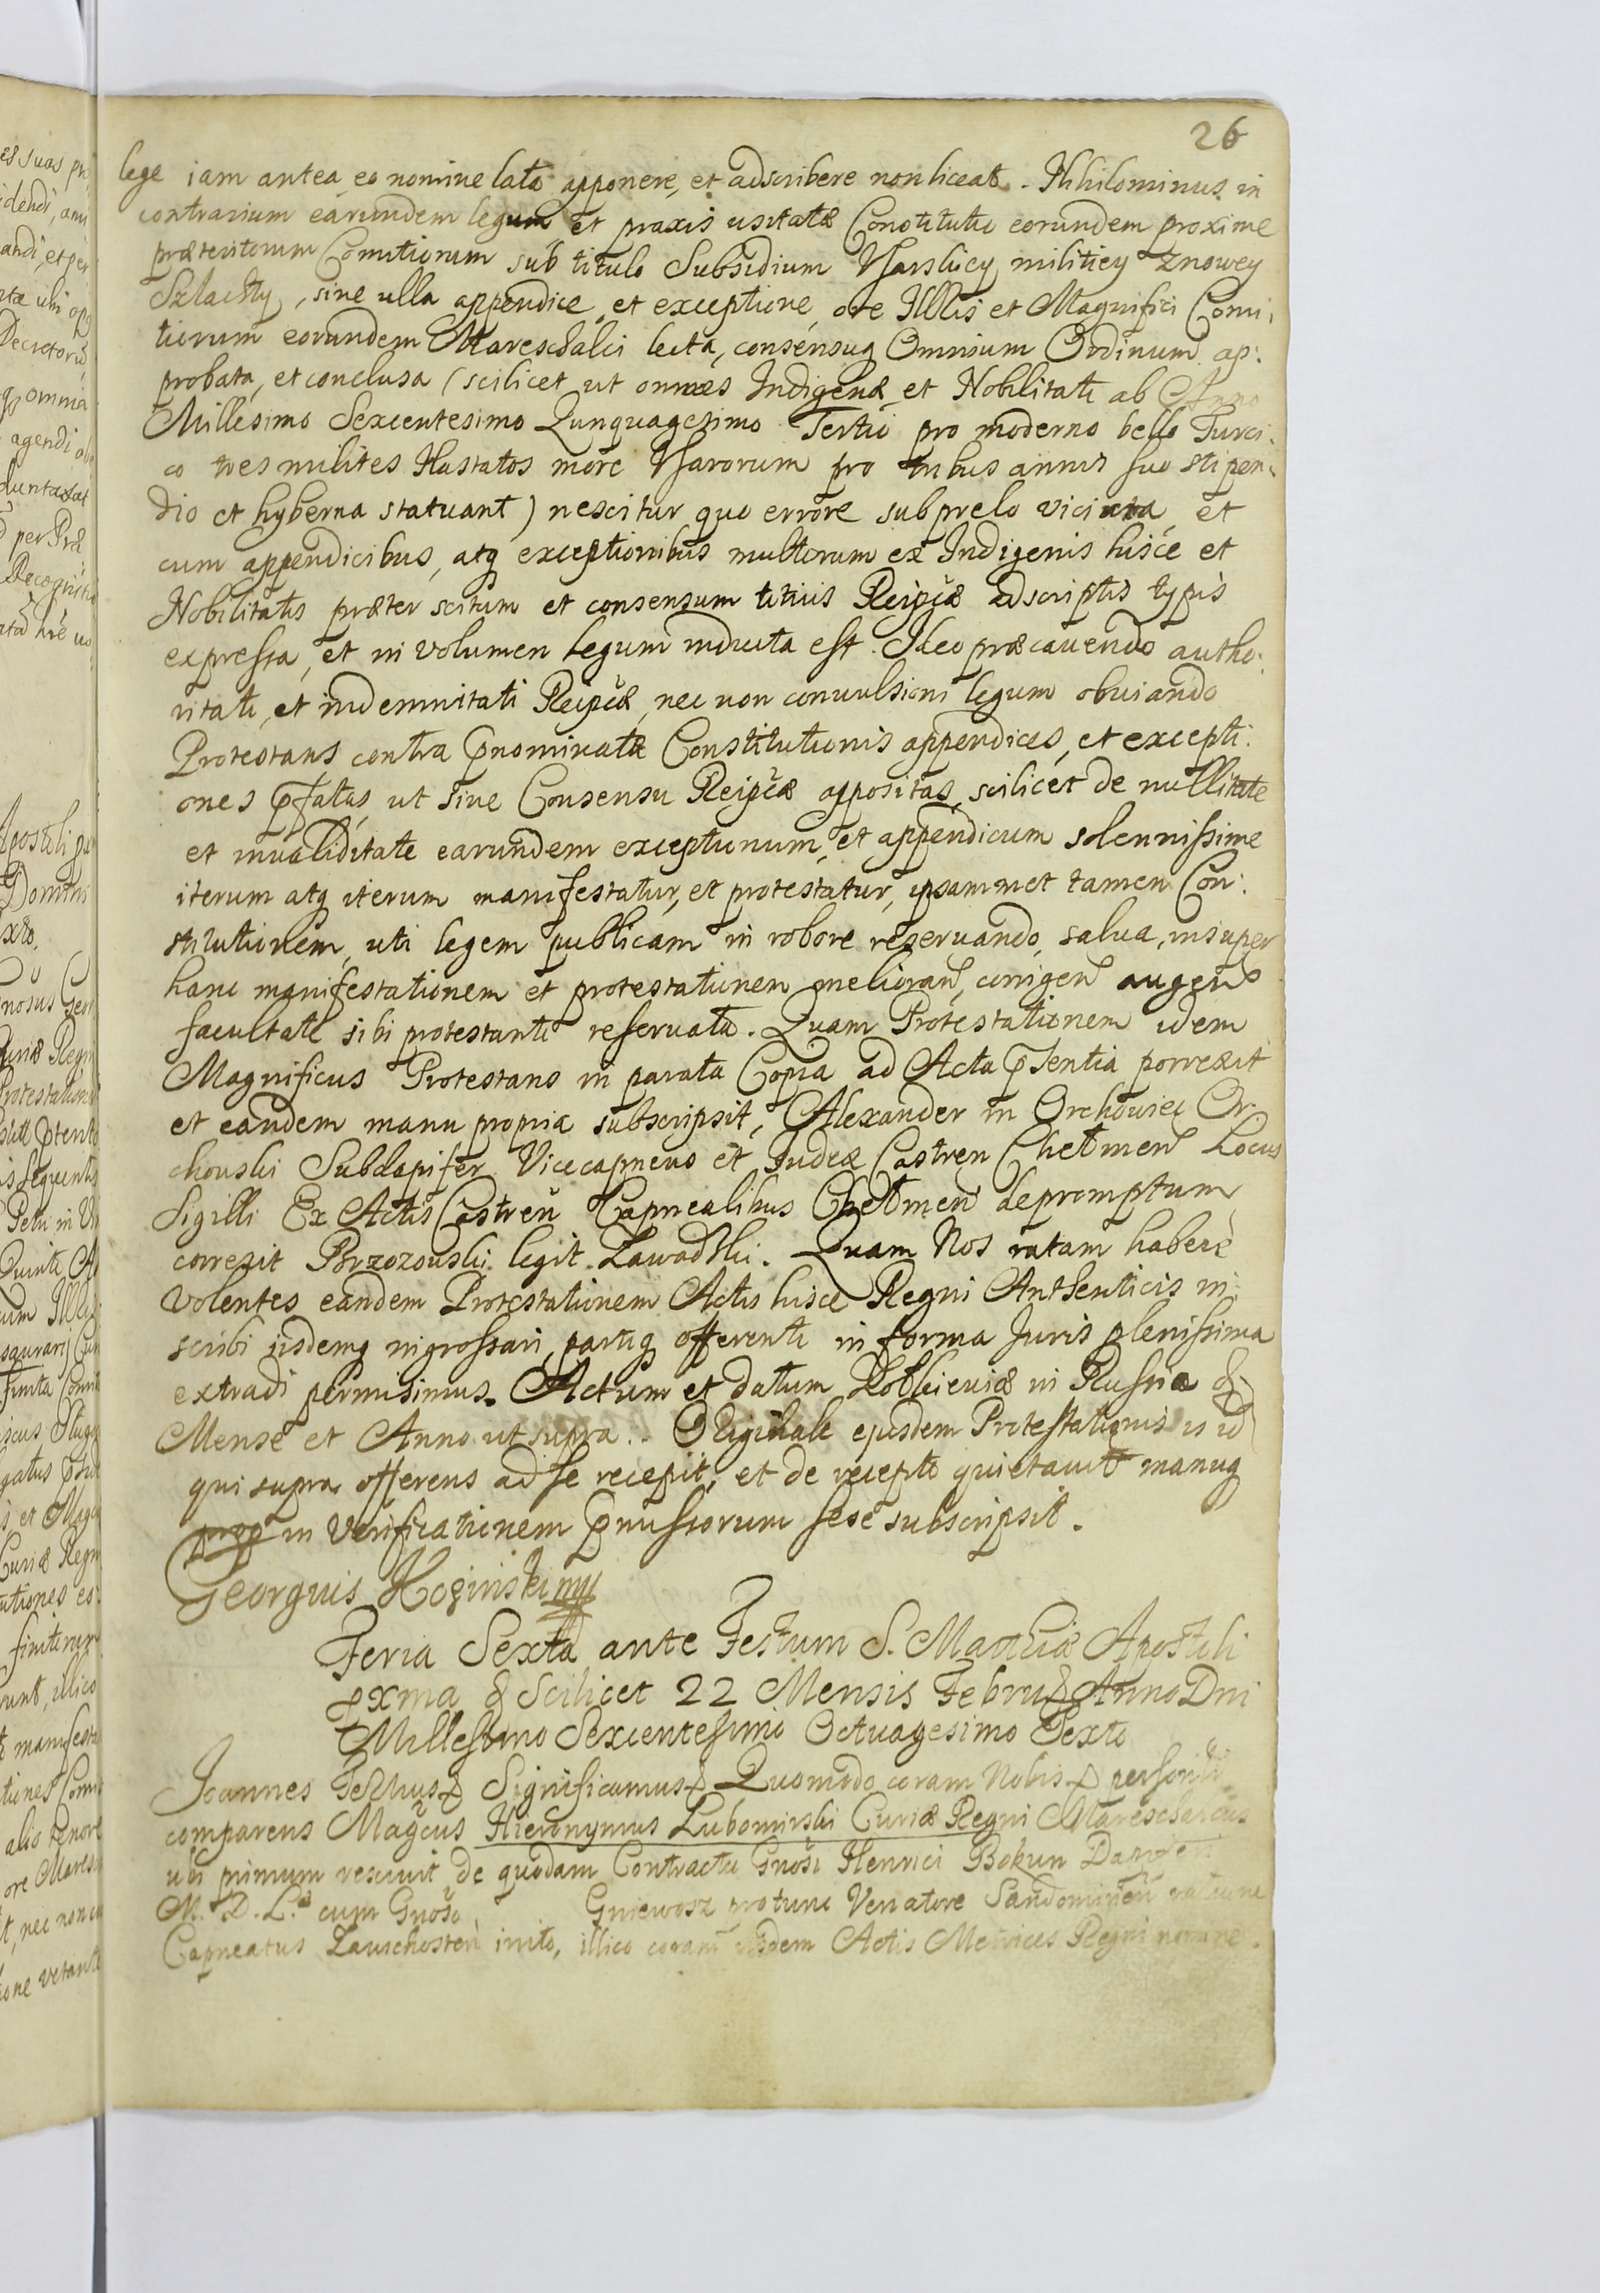 26
lege iam antea eo nomine lata apponere, et adscribere non liceat. Nihilominus in
contrarium earundem legum et praxis usitatæ Constitutio eorundem proxime
præteritorum Comitiorum sub titulo Subsidium Usarskiey militiey znowey
Szlachty, sine ulla appendice, et exceptione, ore Illtis et Magnifici Comi:
tiorum eorundem Mareschalci lecta, consensuq Omnium Ordinum ap:
probata, et conclusa (scilicet ut omnes Indigenæ, et Nobilitati ab Anno
Millesimo Sexcentesimo Qunquagesimo Tertio pro moderno bello Turci:
co tres milites Hastatos more Usarorum pro tribus annis suo stipen:
dio et hyberna statuant) nescitur quo errore sub prelo viciata, et
cum appendicibus, atq exceptionibus multorum ex Indigenis hisce et
Nobilitatis præter scitum et consensum totius Reipcæ adscriptis typis
expressa, et in volumen legum inducta est. Ideo præcavendo autho:
ritati, et indemnitati Reipcæ, nec non convulsioni legum obviando
Protestans contra pnominatæ Constitutionis appendices, et excepti:
ones pfatas, ut sine Consensu Reipcæ appositas, scilicet de nullitate
et invaliditate earundem exceptionum, et appendicum solennissime
iterum atq iterum manifestatur, et protestatur, ipsammet tamen Con:
stitutionem, uti legem publicam in robore reservando, salva, insuper
hanc manifestationem et protestationem meliorand, corrigend augend
facultate sibi protestanti reservata. Quam Protestationem idem
Magnificus Protestans in parata Copia ad Acta psentia porrexit
et eandem manu propria subscripsit, Alexander in Orchowiec Or:
chouski Subdapifer Vicecapneus et Judex Castren Chełmen Locus
Sigilli Ex Actis Castren Capnealibus Chełmen depromptum
correxit Brzozouski legit Zawadzki. Quam Nos ratam habere
volentes eandem Protestationem Actis hisce Regni Authenticis in:
scribi iisdemq ingrossari, partiq offerenti in forma Juris plenissima
extradi permisimus. Actum et datum Zołkieviæ in Russia &
Mense et Anno ut supra. Originale ejusdem Protestationis is id
qui supra offerens ad se recepit, et de recepto quietavit manuq
prop in Verificationem pmissorum sese subscripsit.
Georgius Koziński mp
Feria Sexta ante Festum S. Mathiæ Apostoli
pxma & Scilicet 22 Mensis Febru& Anno Dni
Millesimo Sexcentesimo Octuagesimo Sexto
Joannes Tertius& Significamus& Quomodo coram Nobis&
comparens Magcus Hieronymus Lubomirski Curiæ Regni Mareschalcus
ubi primum rescivit de quodam Contractu Gnosi Henrici Bokun Dapiferi
M. D. L. cum Gnoso Gniewosz pro tunc Venatore Sandomirien ratione
Capneatus Zawichosten inito, illico coram iisdem Actis Metrices Regni nomine